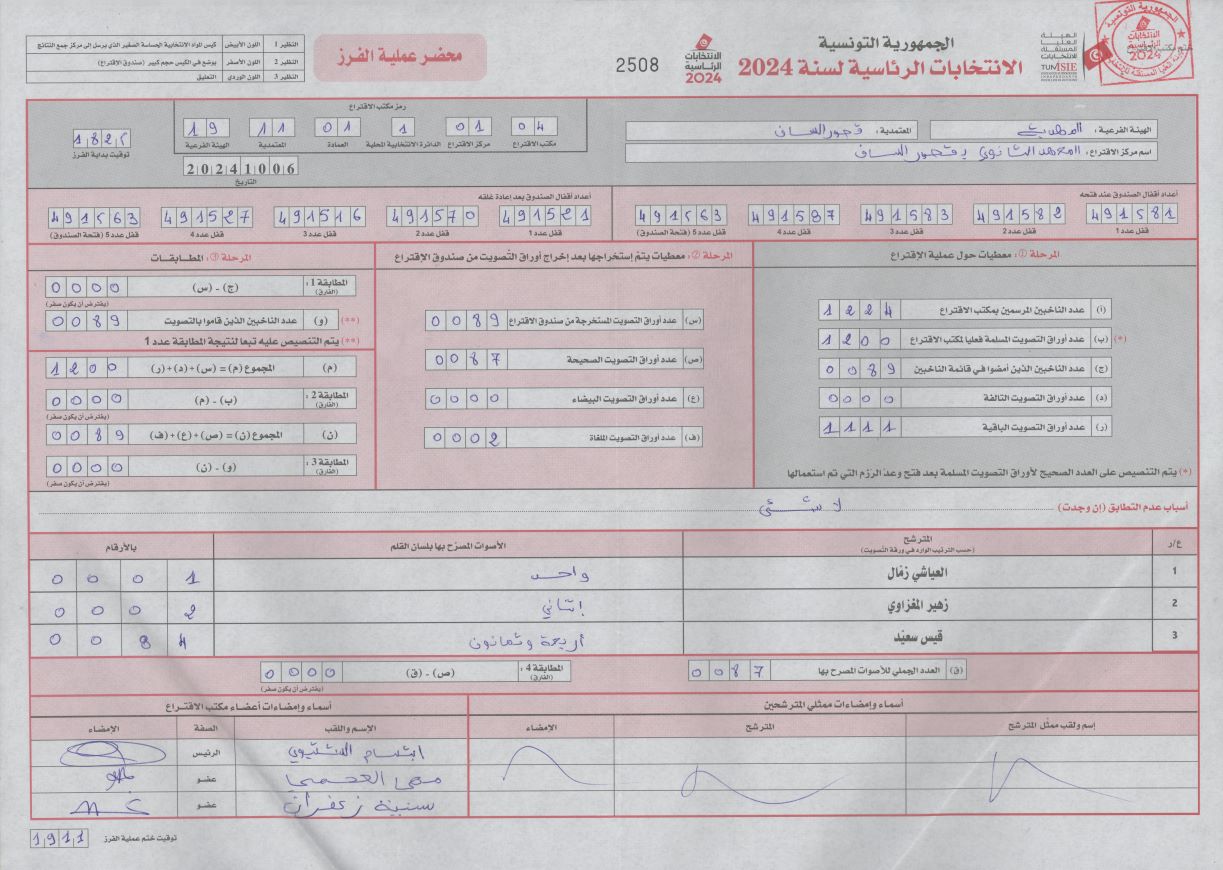 الجمهورية التونسية
الانتخابات الرئاسية لسنة 2024
الهيئة العليا المستقلة للانتخابات
TUNISIE
الانتخابات الرئاسية 2024
2508
محضر عملية الفرز
النظير 1 اللون الأبيض كيس المواد الانتخابية الحساسة الصغير الذي يرسل إلى مركز جمع النتائج
النظير 2 اللون الأصفر يوضع في الكيس حجم كبير (صندوق الاقتراع)
النظير 3 اللون الوردي التعليق
ختم مكتب الاقتراع
الجمهورية التونسية
الانتخابات الرئاسية 2024
الهيئة الفرعية : المهدية المعتمدية : قصور الساف
اسم مركز الاقتراع : المعهد الثانوي بقصور الساف
رمز مكتب الاقتراع
04 01 1 01 11 19
مكتب الاقتراع مركز الاقتراع الدائرة الانتخابية المحلية العمادة المعتمدية الهيئة الفرعية
20241006
التاريخ
1825
توقيت بداية الفرز
أعداد أقفال الصندوق عند فتحه
491581 491582 491583 491587 491563
قفل عدد 1 قفل عدد 2 قفل عدد 3 قفل عدد 4 قفل عدد 5 (فتحة الصندوق)
أعداد أقفال الصندوق بعد إعادة غلقه
491521 491570 491516 491527 491563
قفل عدد 1 قفل عدد 2 قفل عدد 3 قفل عدد 4 قفل عدد 5 (فتحة الصندوق)
المرحلة 1 : معطيات حول عملية الإقتراع
(أ) عدد الناخبين المرسمين بمكتب الاقتراع 1224
(*) (ب) عدد أوراق التصويت المسلمة فعليا لمكتب الاقتراع 1200
(ج) عدد الناخبين الذين أمضوا في قائمة الناخبين 0089
(د) عدد أوراق التصويت التالفة 0000
(ر) عدد أوراق التصويت الباقية 1111
(*) يتم التنصيص على العدد الصحيح لأوراق التصويت المسلمة بعد فتح وعد الرزم التي تم استعمالها
المرحلة 2 : معطيات يتم إستخراجها بعد إخراج أوراق التصويت من صندوق الإقتراع
(س) عدد أوراق التصويت المستخرجة من صندوق الاقتراع 0089
(ص) عدد أوراق التصويت الصحيحة 0087
(ع) عدد أوراق التصويت البيضاء 0000
(ف) عدد أوراق التصويت الملغاة 0002
المرحلة 3 : المطابقات
المطابقة 1 : (الفارق) (ج) - (س) 0000
(يفترض أن يكون صفر)
(**) (و) عدد الناخبين الذين قاموا بالتصويت 0089
(**) يتم التنصيص عليه تبعا لنتيجة المطابقة عدد 1
(م) المجموع (م) = (س) + (د) + (ر) 1200
المطابقة 2 : (الفارق) (ب) - (م) 0000
(يفترض أن يكون صفر)
(ن) المجموع (ن) = (ص) + (ع) + (ف) 0089
المطابقة 3 : (الفارق) (و) - (ن) 0000
(يفترض أن يكون صفر)
أسباب عدم التطابق (إن وجدت) لا شئ
ع/ر المترشح (حسب الترتيب الوارد في ورقة التصويت) الأصوات المصرّح بها بلسان القلم بالأرقام
1 العياشي زمّال واحد 0001
2 زهير المغزاوي إثنان 0002
3 قيس سعيّد أربعة وثمانون 0084
(ق) العدد الجملي للأصوات المصرح بها 0087
المطابقة 4 : (الفارق) (ص) - (ق) 0000
(يفترض أن يكون صفر)
أسماء وإمضاءات ممثلي المترشحين
إسم ولقب ممثل المترشح المترشح الامضاء
أسماء وإمضاءات أعضاء مكتب الاقتراع
الإسم واللقب الصفة الامضاء
ابتسام الشتيوي الرئيس
مهى العجمي عضو
سنية زعفران عضو
توقيت ختم عملية الفرز 1911